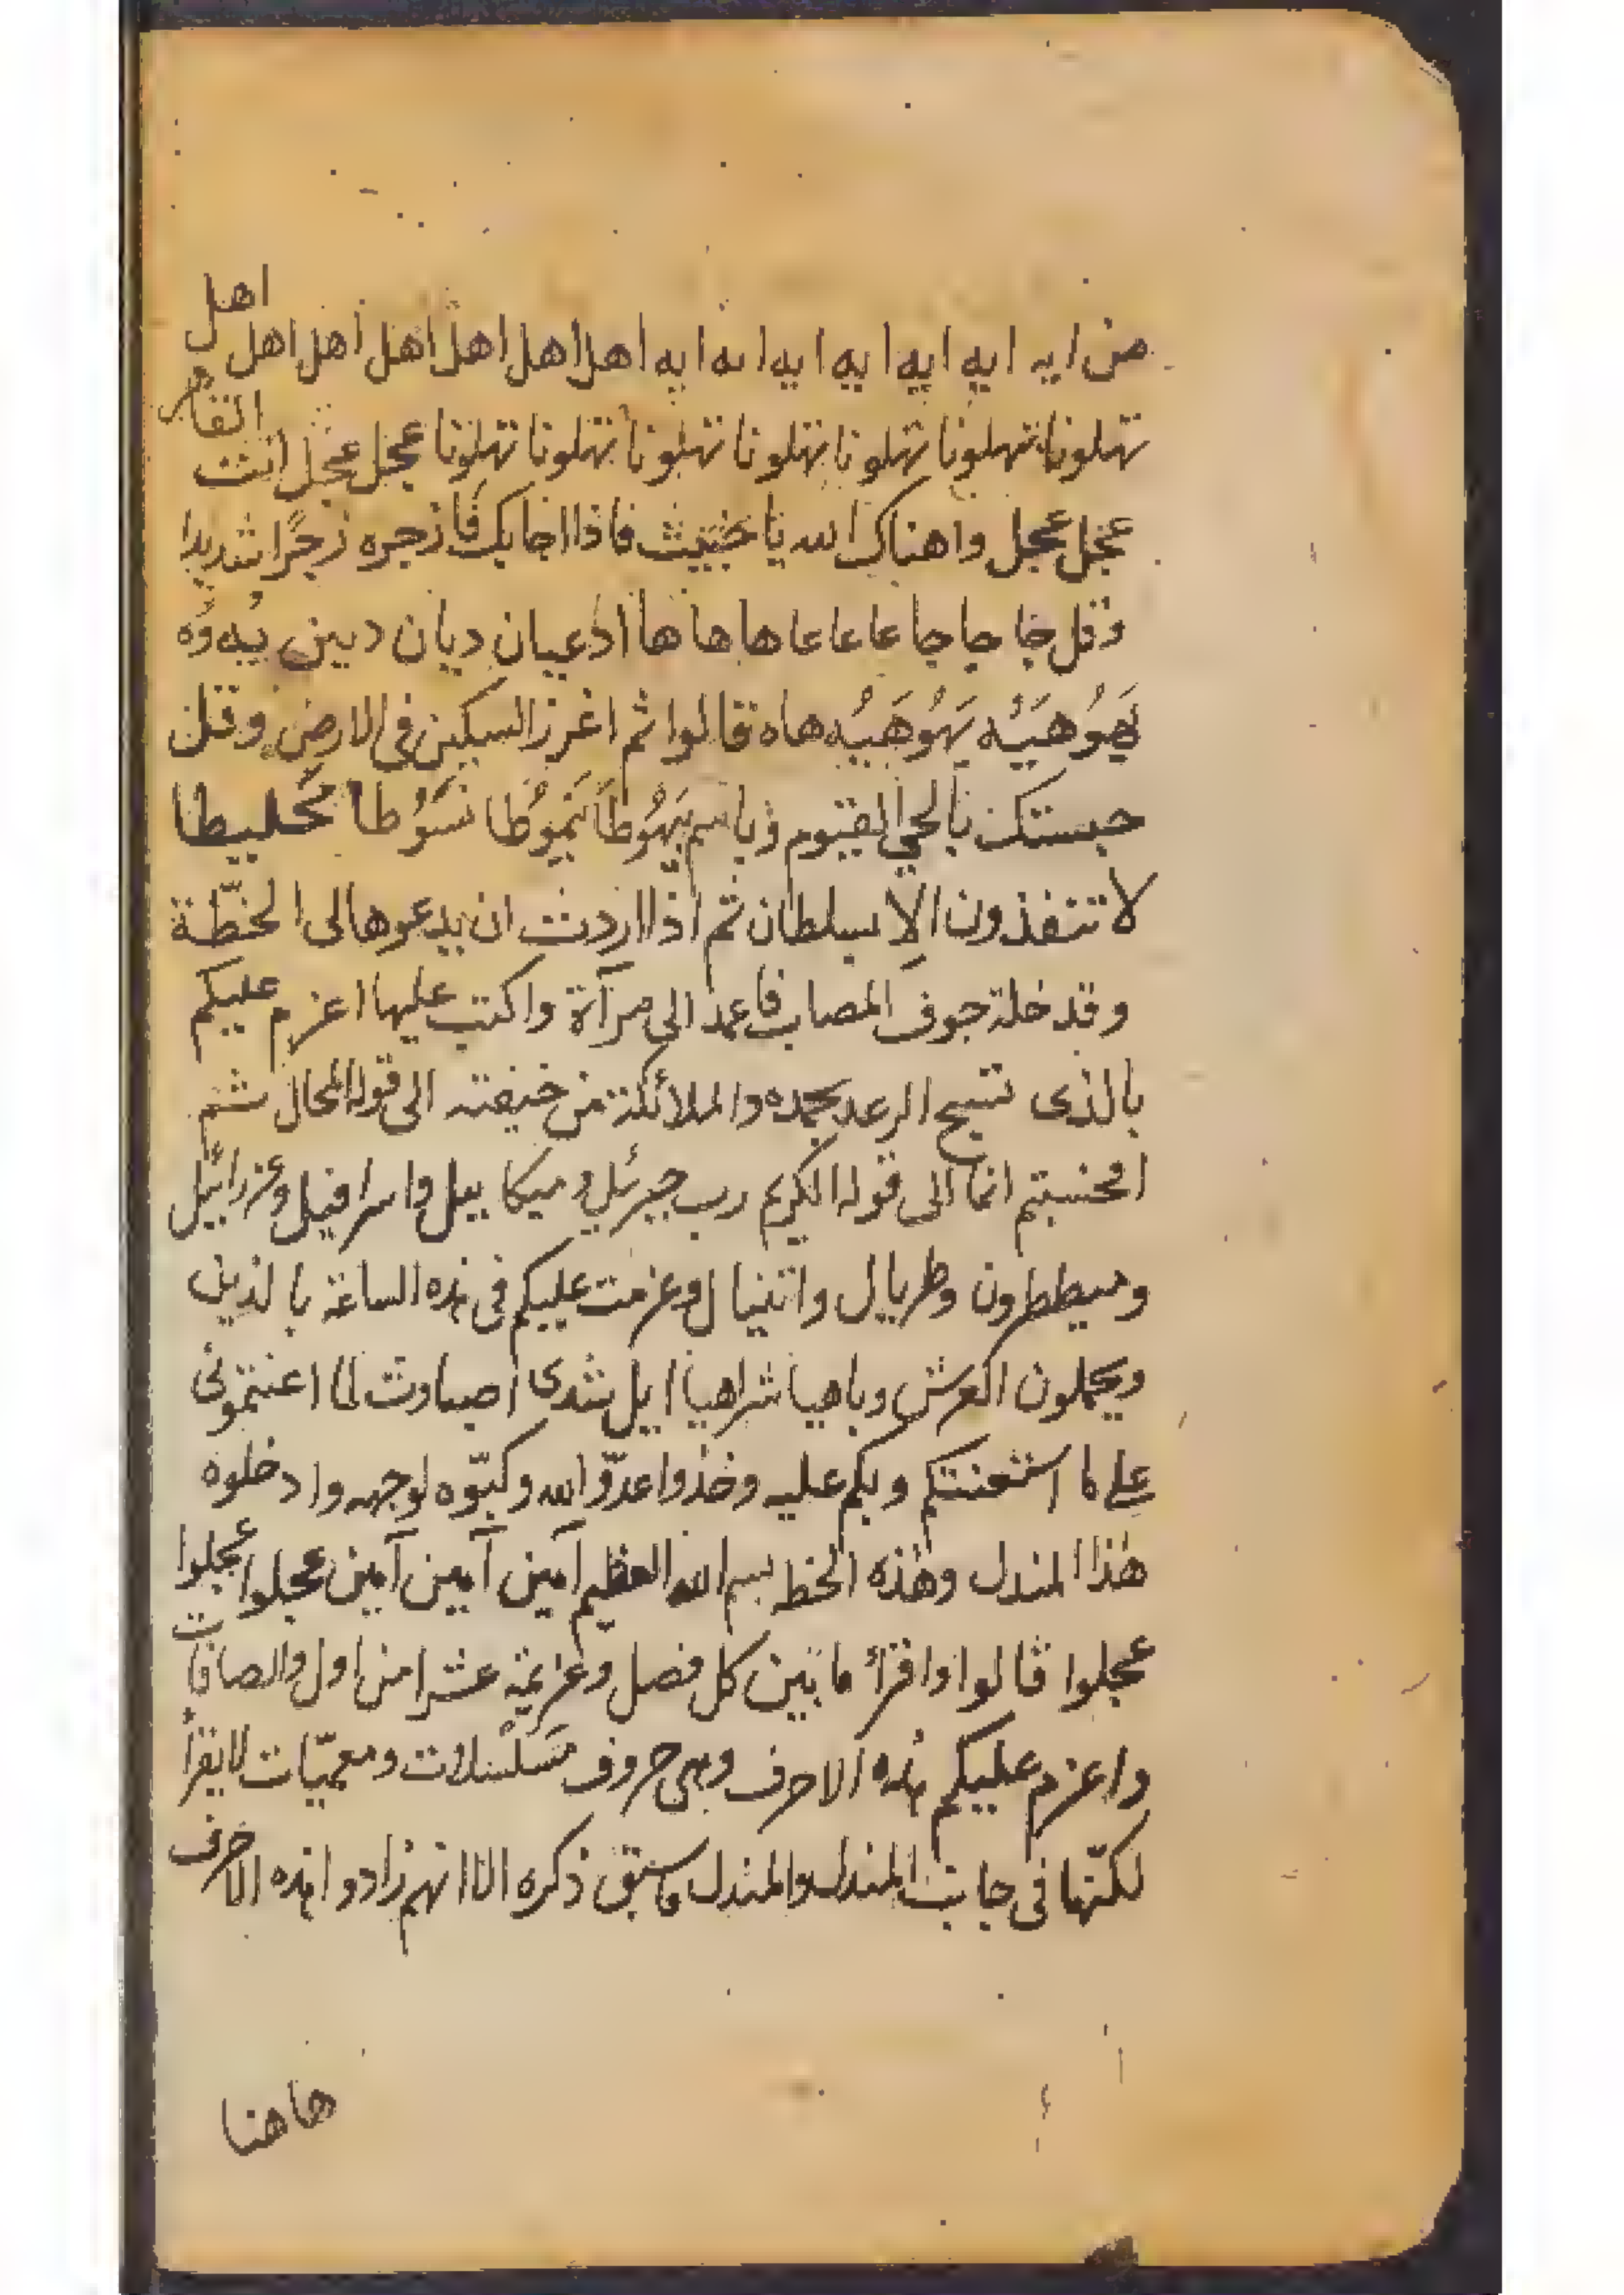 من ايه ايه ايه ايه ايه ايه ايه اهل اهل اهل اهل اهل اهل اهل
تهلونا تهلونا تهلونا تهلونا تهلونا تهلونا تهلونا عجل عجل انت القاهر
عجل عجل واهناك الله يا خبيث فاذا اجابك فازجره زجرًا شديدا
وقل جا جا جا عا عا عا ها ها ها ادعيان ديان ديين
يَهوُهَيَه يَهُوهَيُه هاه قالوا ثم اغرز السكين فى الارض وقل
حبستك بالحي القيوم وباسم
لا تنفذون الا بسلطان ثم اذا اردت ان يدعوها الى الخطّة
وقد خلة جوف المصاب فاعمد الى مرآة واكتب عليها اعزم عليكم
بالذى تسبح الرعد بحمده والملائكة من خيفته الى قوله المحال ثم
افحسبتم انما الى قوله الكريم رب جبرئيل وميكاييل واسرافيل وعزرائيل
وميططرون وطريال واتنيال وعزمت عليكم فى هذه الساعة بالذين
ويحملون العرش وباهيا شراهيا ايل شدى اصباوت لما اعنتمونى
على ما استعنتكم وبكم عليه وخذوا عدوّ الله وكبّوه لوجهه وادخلوه
هذا المندل وهذه الخط بسم الله العظيم آمين آمين آمين عجلوا عجلوا
عجلوا قالوا واقرأ ما بين كل فصل وعزيمة عشرا من اول والصافات
واعزم عليكم هذه الاحرف وهى حروف مسلسلات ومعميّات لا يقرأ
لكنّها فى جانب المندل والمندل ما سبق ذكره الا انهم زادوا هذه الاحرف
هاهنا